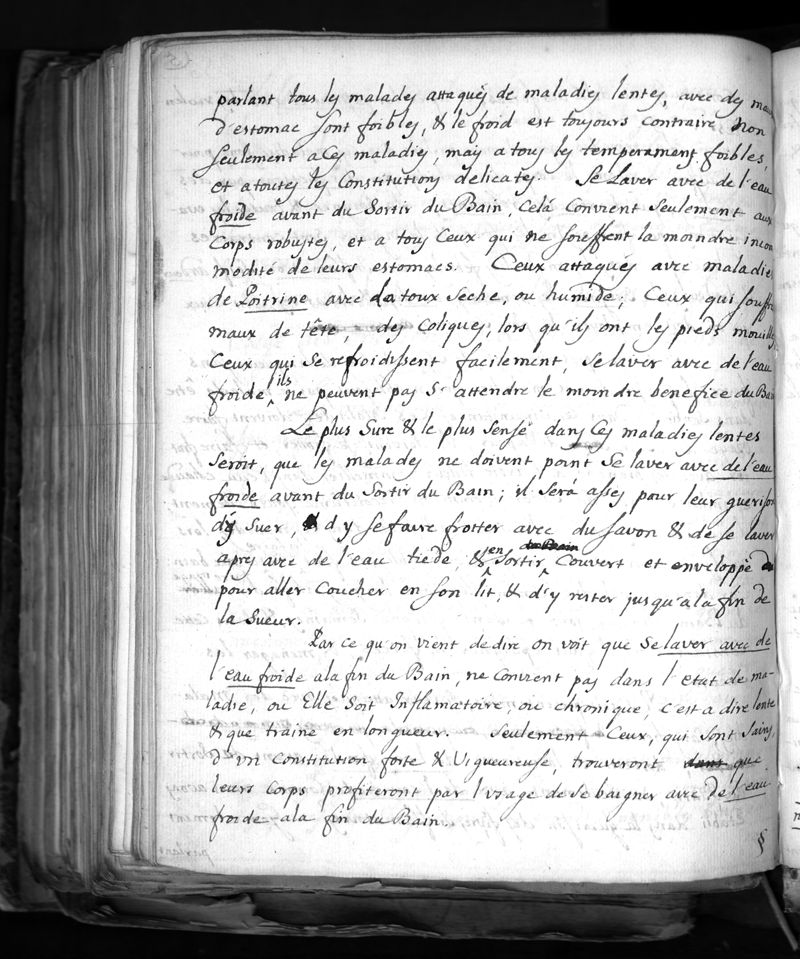 parlant tous les malades attaqués de maladies lentes, avec des maux
d'estomac sont foibles, & le froid est toujours contraire Non
seulement a Ces maladies, mais a tous les temperaments foibles,
et a toutes les Constitutions delicates. Se Laver avec de l'eau
froide avant du Sortir du Bain, Celá Convient Seulement aux
Corps robustes, et a tous Ceux qui ne souffrent la moindre incom
modité de leurs estomacs. Ceux attaqués avec maladies
de Poitrine avec la toux Seche, ou humide; Ceux qui souffre
maux de tête, des Coliques, lors qu'ils ont les pieds mouillés
Ceux qui Se refroidissent facilement, Se laver avec de l'eau
froide, ils ne peuvent pas S'attendre le moindre benefice du Bain
Le plus Sure & le plus Sensé dans Ces maladies lentes
Seroit, que les malades ne doivent point Se laver avec de l'eau
froide avant du Sortir du Bain; il Será asses pour leur guerison
d'y Suer, & d'y se faire frotter avec du Savon & de se laver
apres avec de l'eau tiede, & en Sortir du Bain Couvert et enveloppé
pour aller Coucher en son lit, & d'y rester jusqu'a la fin de
la Sueur.
Par ce qu'on vient de dire on voit que Se laver avec de
l'eau froide a la fin du Bain, ne Convient pas dans l'etat de ma-
ladie, ou Elle Soit Inflamatoire, ou chronique, c'est a dire lente
& que traine en longueur. Seulement Ceux, qui sont Sains,
d'un Constitution forte & Vigueureuse, trouveront dans que
leurs Corps profiteront par l'usage de se baigner avec de l'eau
froide a la fin du Bain.
§